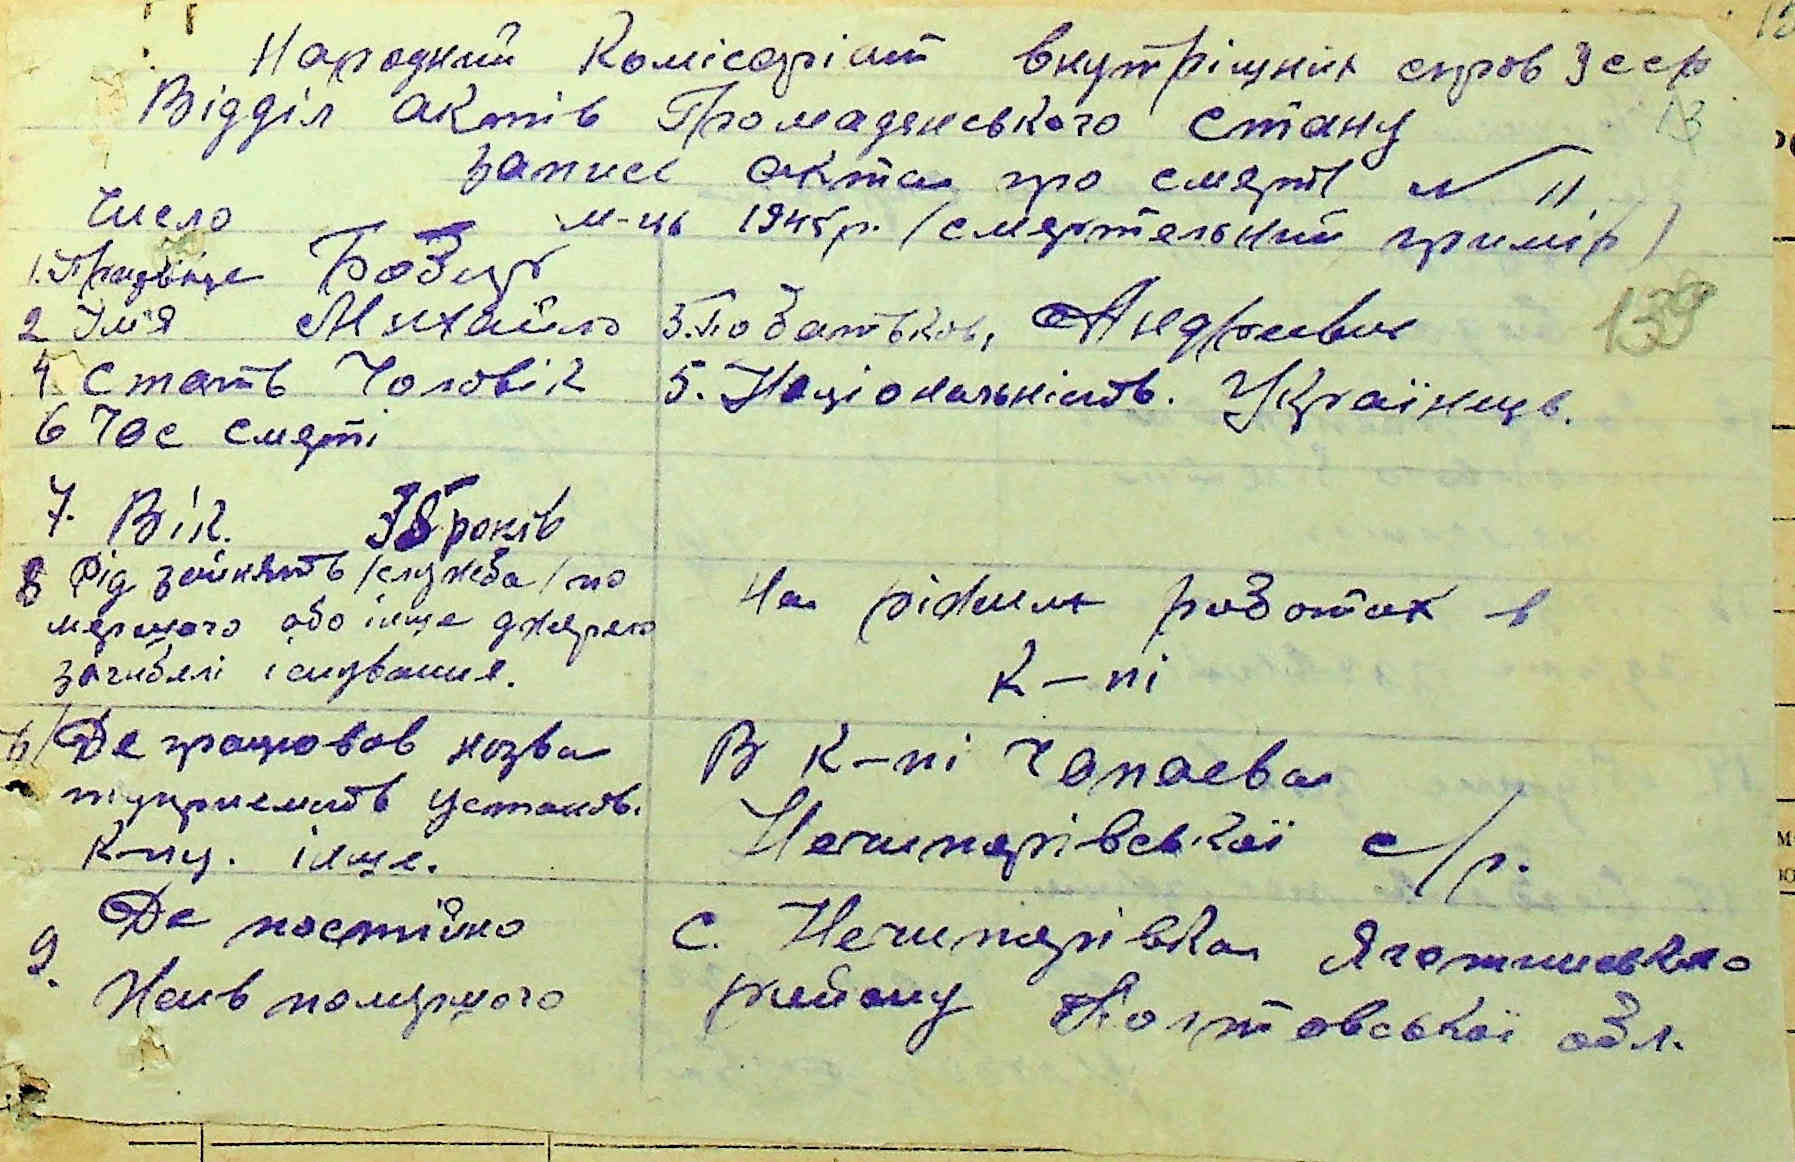 Народний Комісаріат внутрішніх справ УССР
Відділ актів Громадянського стану
Запис акта про смерть № 11
Число м-ць 194 р. (смертельний примір)
1. Прізвіще Бобир
2 Імя Михайло 3. По батькові, Андрієвич
4. Стать Чоловік 5. Національність. Українець.
6 Час смерті
7. Вік. 35 років
8 Рід зайнять (служба) по
мершого або інше джерело
існування.
На ріжних роботах в
К-пі
б) Де працював назва
підприємств установ.
К-пу. інше.
В К-пі Чапаева
Нечипорівської с/р.
9. Де постійно
Жив помершого
С. Нечипорівка Яготинського
району Полтовської обл.
139
13